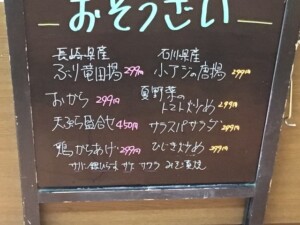 おそうざい
長崎県産
ぶり竜田揚 299円
おから 299円
天ぷら盛合せ 450円
鶏からあげ 299円
石川県産
小アジの唐揚 299円
夏野菜の
トマト炒め 299円
サラスパサラダ 299円
ひじき炒め 299円
サバ 銀ひらす サケ サワラ みそ漬焼